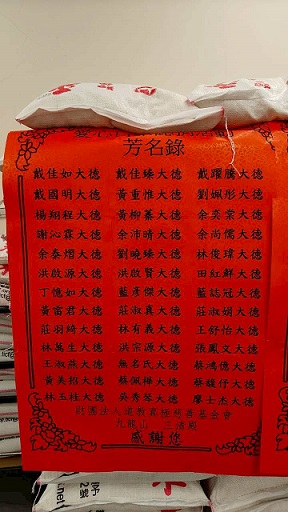 芳名錄
戴佳如大德 戴佳臻大德 戴躍騰大德
戴國明大德 黃重惟大德 劉姵彤大德
楊翔程大德 黃柳蓁大德 余奕棠大德
謝沁霖大德 余沛晴大德 余尚儒大德
余泰熠大德 劉曉臻大德 林俊瑋大德
洪啟源大德 洪啟賢大德 田紅鮮大德
丁憶如大德 藍彥傑大德 藍誌冠大德
黃富君大德 莊淑真大德 莊淑娟大德
莊羽綺大德 林有義大德 王舒怡大德
林萬生大德 洪宗源大德 張鳳文大德
王淑燕大德 無名氏大德 蔡鴻儀大德
黃美招大德 蔡佩樺大德 蔡馥伃大德
林玉桂大德 吳秀琴大德 廖士杰大德
財團法人道教真極慈善基金會
九龍山 三清殿
感謝您